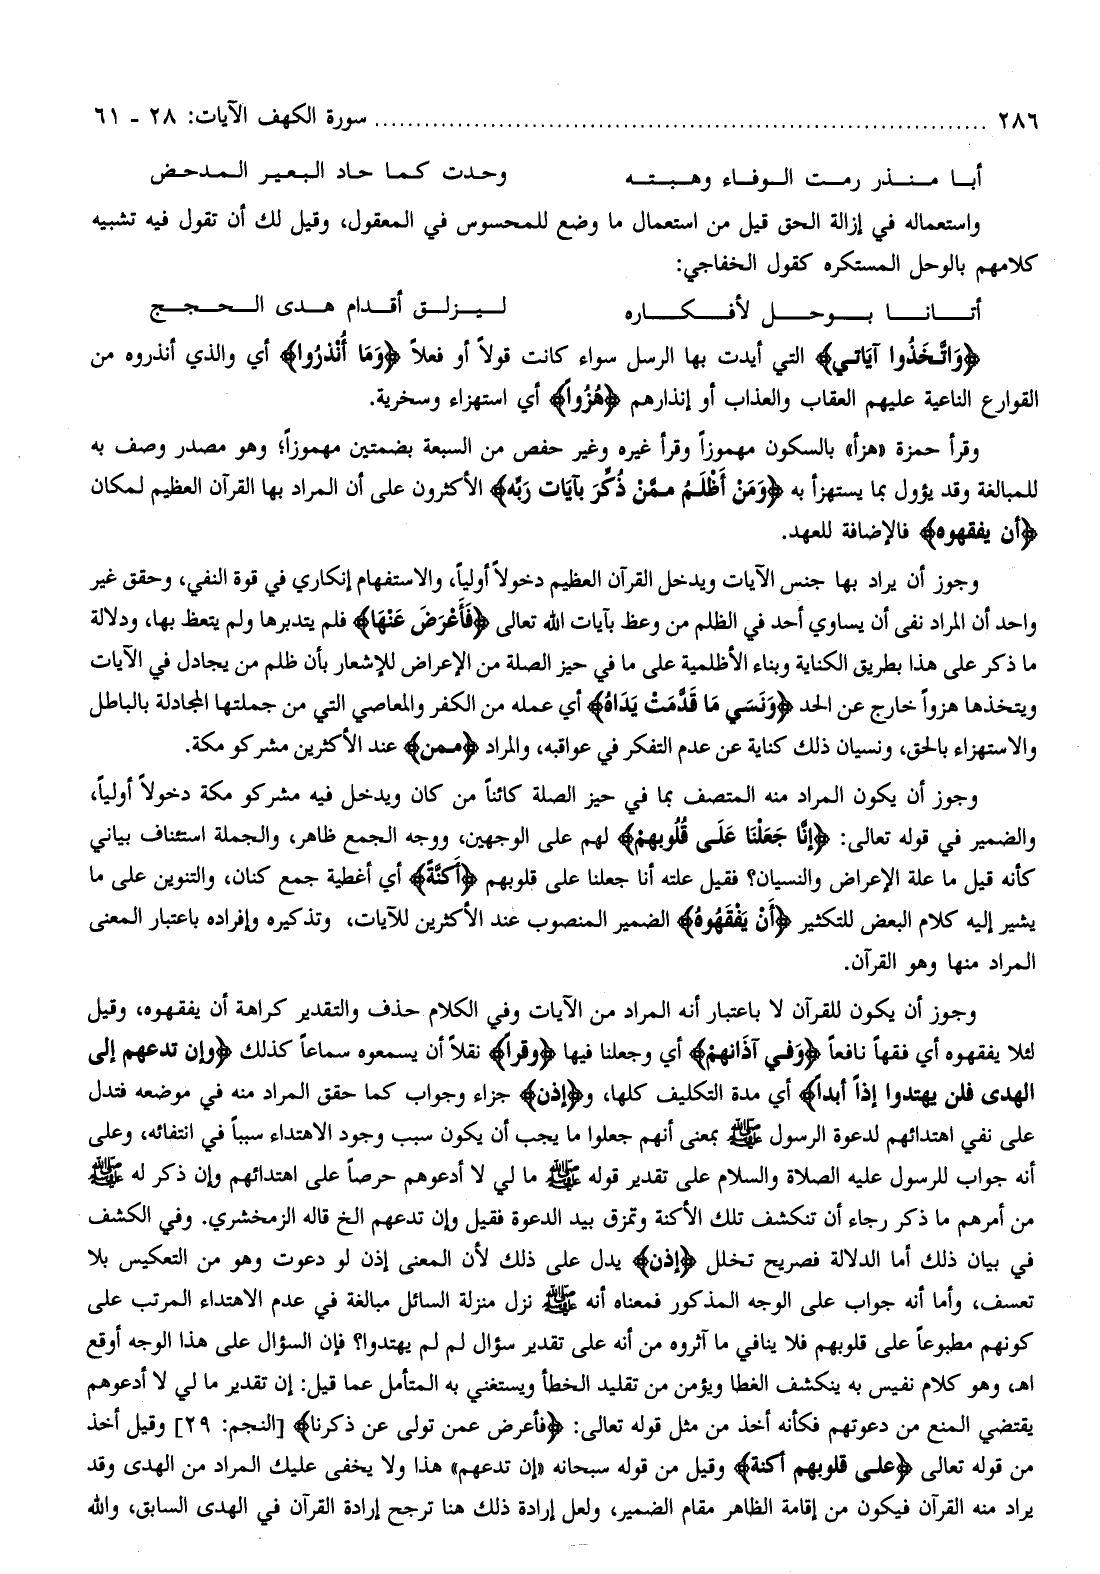 ٢٨٦ ........................................................ سورة الكهف الآيات: ٢٨ - ٦١
أبـا مـنـذر رمـت الـوفـاء وهـبـتـه وحـدت كـمـا حاد الـبـعـيـر الـمـدحـض
واستعماله في إزالة الحق قيل من استعمال ما وضع للمحسوس في المعقول، وقيل لك أن تقول فيه تشبيه
كلامهم بالوحل المستكره كقول الخفاجي:
أتـانـا بـوحـل لأفـكـاره لـيـزلـق أقـدام هـدى الـحـجـج
﴿وَاتَّخَذُوا آيَاتي﴾ التي أيدت بها الرسل سواء كانت قولاً أو فعلاً ﴿وَمَا أُنْذرُوا﴾ أي والذي أنذروه من
القوارع الناعية عليهم العقاب والعذاب أو إنذارهم ﴿هُزُواً﴾ أي استهزاء وسخرية.
وقرأ حمزة «هزأ» بالسكون مهموزاً وقرأ غيره وغير حفص من السبعة بضمتين مهموزاً؛ وهو مصدر وصف به
للمبالغة وقد يؤول بما يستهزأ به ﴿وَمَنْ أَظْلَمُ ممَّنْ ذُكِّرَ بآيَات رَبِّه﴾ الأكثرون على أن المراد بها القرآن العظيم لمكان
﴿أن يفقهوه﴾ فالإضافة للعهد.
وجوز أن يراد بها جنس الآيات ويدخل القرآن العظيم دخولاً أولياً، والاستفهام إنكاري في قوة النفي، وحقق غير
واحد أن المراد نفى أن يساوي أحد في الظلم من وعظ بآيات الله تعالى ﴿فَأَعْرَضَ عَنْهَا﴾ فلم يتدبرها ولم يتعظ بها، ودلالة
ما ذكر على هذا بطريق الكناية وبناء الأظلمية على ما في حيز الصلة من الإعراض للإشعار بأن ظلم من يجادل في الآيات
ويتخذها هزواً خارج عن الحد ﴿وَنَسي مَا قَدَّمَتْ يَدَاهُ﴾ أي عمله من الكفر والمعاصي التي من جملتها المجادلة بالباطل
والاستهزاء بالحق، ونسيان ذلك كناية عن عدم التفكر في عواقبه، والمراد ﴿ممن﴾ عند الأكثرين مشركو مكة.
وجوز أن يكون المراد منه المتصف بما في حيز الصلة كائناً من كان ويدخل فيه مشركو مكة دخولاً أولياً،
والضمير في قوله تعالى: ﴿إنَّا جَعَلْنَا عَلَى قُلُوبهمْ﴾ لهم على الوجهين، ووجه الجمع ظاهر، والجملة استئناف بياني
كأنه قيل ما علة الإعراض والنسيان؟ فقيل علته أنا جعلنا على قلوبهم ﴿أَكنَّةً﴾ أي أغطية جمع كنان، والتنوين على ما
يشير إليه كلام البعض للتكثير ﴿أَنْ يَفْقَهُوهُ﴾ الضمير المنصوب عند الأكثرين للآيات، وتذكيره وإفراده باعتبار المعنى
المراد منها وهو القرآن.
وجوز أن يكون للقرآن لا باعتبار أنه المراد من الآيات وفي الكلام حذف والتقدير كراهة أن يفقهوه، وقيل
لئلا يفقهوه أي فقهاً نافعاً ﴿وَفي آذَانهمْ﴾ أي وجعلنا فيها ﴿وقراً﴾ نقلاً أن يسمعوه سماعاً كذلك ﴿وإن تدعهم إلى
الهدى فلن يهتدوا إذاً أبداً﴾ أي مدة التكليف كلها، و﴿إذن﴾ جزاء وجواب كما حقق المراد منه في موضعه فتدل
على نفي اهتدائهم لدعوة الرسول ﷺ بمعنى أنهم جعلوا ما يجب أن يكون سبب وجود الاهتداء سبباً في انتفائه، وعلى
أنه جواب للرسول عليه الصلاة والسلام على تقدير قوله ﷺ ما لي لا أدعوهم حرصاً على اهتدائهم وإن ذكر له ﷺ
من أمرهم ما ذكر رجاء أن تنكشف تلك الأكنة وتمزق بيد الدعوة فقيل وإن تدعهم الخ قاله الزمخشري. وفي الكشف
في بيان ذلك أما الدلالة فصريح تخلل ﴿إذن﴾ يدل على ذلك لأن المعنى إذن لو دعوت وهو من التعكيس بلا
تعسف، وأما أنه جواب على الوجه المذكور فمعناه أنه ﷺ نزل منزلة السائل مبالغة في عدم الاهتداء المرتب على
كونهم مطبوعاً على قلوبهم فلا ينافي ما آثروه من أنه على تقدير سؤال لم لم يهتدوا؟ فإن السؤال على هذا الوجه أوقع
اهـ، وهو كلام نفيس به ينكشف الغطا ويؤمن من تقليد الخطأ ويستغني به المتأمل عما قيل: إن تقدير ما لي لا أدعوهم
يقتضي المنع من دعوتهم فكأنه أخذ من مثل قوله تعالى: ﴿فأعرض عمن تولى عن ذكرنا﴾ [النجم: ٢٩] وقيل أخذ
من قوله تعالى ﴿على قلوبهم أكنة﴾ وقيل من قوله سبحانه «إن تدعهم» هذا ولا يخفى عليك المراد من الهدى وقد
يراد منه القرآن فيكون من إقامة الظاهر مقام الضمير، ولعل إرادة ذلك هنا ترجح إرادة القرآن في الهدى السابق، والله